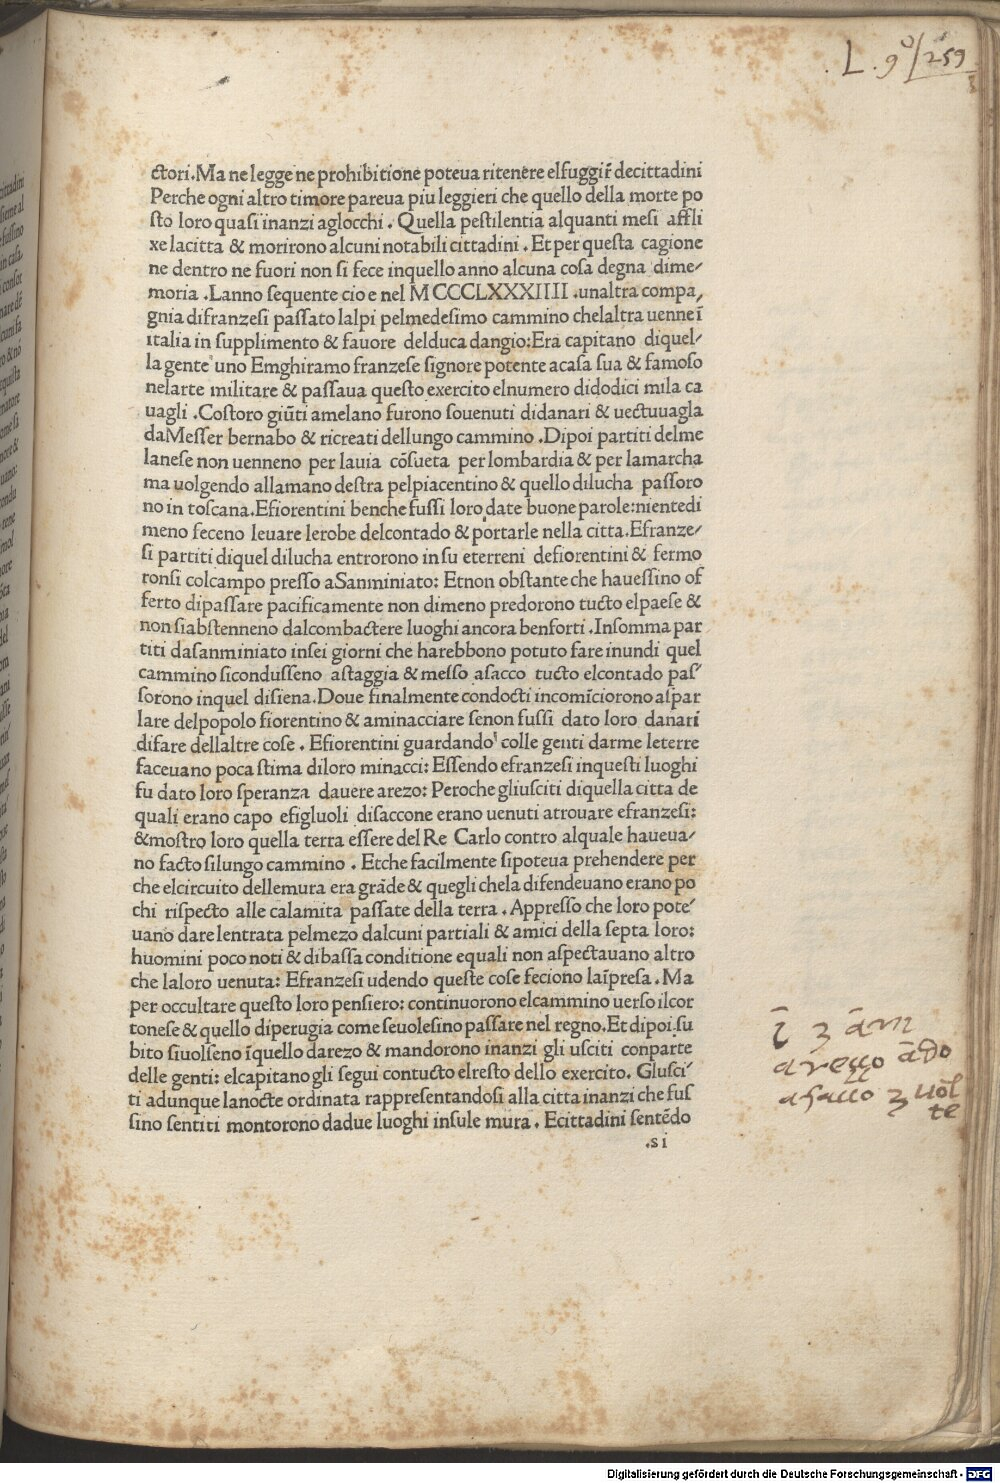 L . 9º / 259
ctori.Ma ne legge ne prohibitione poteua ritenere elfuggir̃ decittadini
Perche ogni altro timore pareua piu leggieri che quello della morte po
sto loro quasi inanzi aglocchi . Quella pestilentia alquanti mesi affli
xe lacitta & morirono alcuni notabili cittadini . Et per questa cagione
ne dentro ne fuori non si fece inquello anno alcuna cosa degna dime/
moria .Lanno sequente cio e nel MCCCLXXXIIII .unaltra compa,
gnia difranzesi passato lalpi pelmedesimo cammino chelaltra uenne ī
italia in supplimento & fauore delduca dangio:Era capitano diquel/
la gente uno Emghiramo franzese signore potente acasa sua & famoso
nelarte militare & passaua questo exercito elnumero didodici mila ca
uagli .Costoro giūti amelano furono souenuti didanari & uectuuagla
daMesser bernabo & ricreati dellungo cammino .Dipoi partiti delme
lanese non uenneno per lauia cōsueta per lombardia & per lamarcha
ma uolgendo allamano destra pelpiacentino & quello dilucha passoro
no in toscana.Efiorentini benche fussi loro date buone parole:nientedi
meno feceno leuare lerobe delcontado & portarle nella citta.Efranze/
si partiti diquel dilucha entrorono in su eterreni defiorentini & fermo
ronsi colcampo presso aSanminiato: Etnon obstante che hauessino of
ferto dipassare pacificamente non dimeno predorono tucto elpaese &
non siabstenneno dalcombactere luoghi ancora benforti .Insomma par
titi dasanminiato insei giorni che harebbono potuto fare inundi quel
cammino sicondusseno astaggia & messo asacco tucto elcontado pas/
sorono inquel disiena.Doue finalmente condocti incomīciorono aspar
lare delpopolo fiorentino & aminacciare senon fussi dato loro danari
difare dellaltre cose . Efiorentini guardando colle genti darme leterre
faceuano poca stima diloro minacci: Essendo efranzesi inquesti luoghi
fu dato loro speranza dauere arezo: Peroche gliusciti diquella citta de
quali erano capo efigluoli disaccone erano uenuti atrouare efranzesi:
&mostro loro quella terra essere del Re Carlo contro alquale haueua/
no facto silungo cammino . Etche facilmente sipoteua prehendere per
che elcircuito dellemura era grāde & quegli chela difendeuano erano po
chi rispecto alle calamita passate della terra . Appresso che loro pote/
uano dare lentrata pelmezo dalcuni partiali & amici della septa loro:
huomini poco noti & dibassa conditione equali non aspectauano altro
che laloro uenuta: Efranzesi udendo queste cose feciono laīpresa . Ma
per occultare questo loro pensiero: continuorono elcammino uerso ilcor
tonese & quello diperugia come seuolesino passare nel regno.Et dipoi su
bito siuolseno īquello darezo & mandorono inanzi gli usciti conparte
delle genti: elcapitano gli segui contucto elresto dello exercito. Glusci/
ti adunque lanocte ordinata rappresentandosi alla citta inanzi che fus
sino sentiti montorono dadue luoghi insule mura . Ecittadini sentēdo
.si
ī 3 ām
arezzo ādo
asacco 3 uol
te
Digitalisierung gefördert durch die Deutsche Forschungsgemeinschaft - DFG